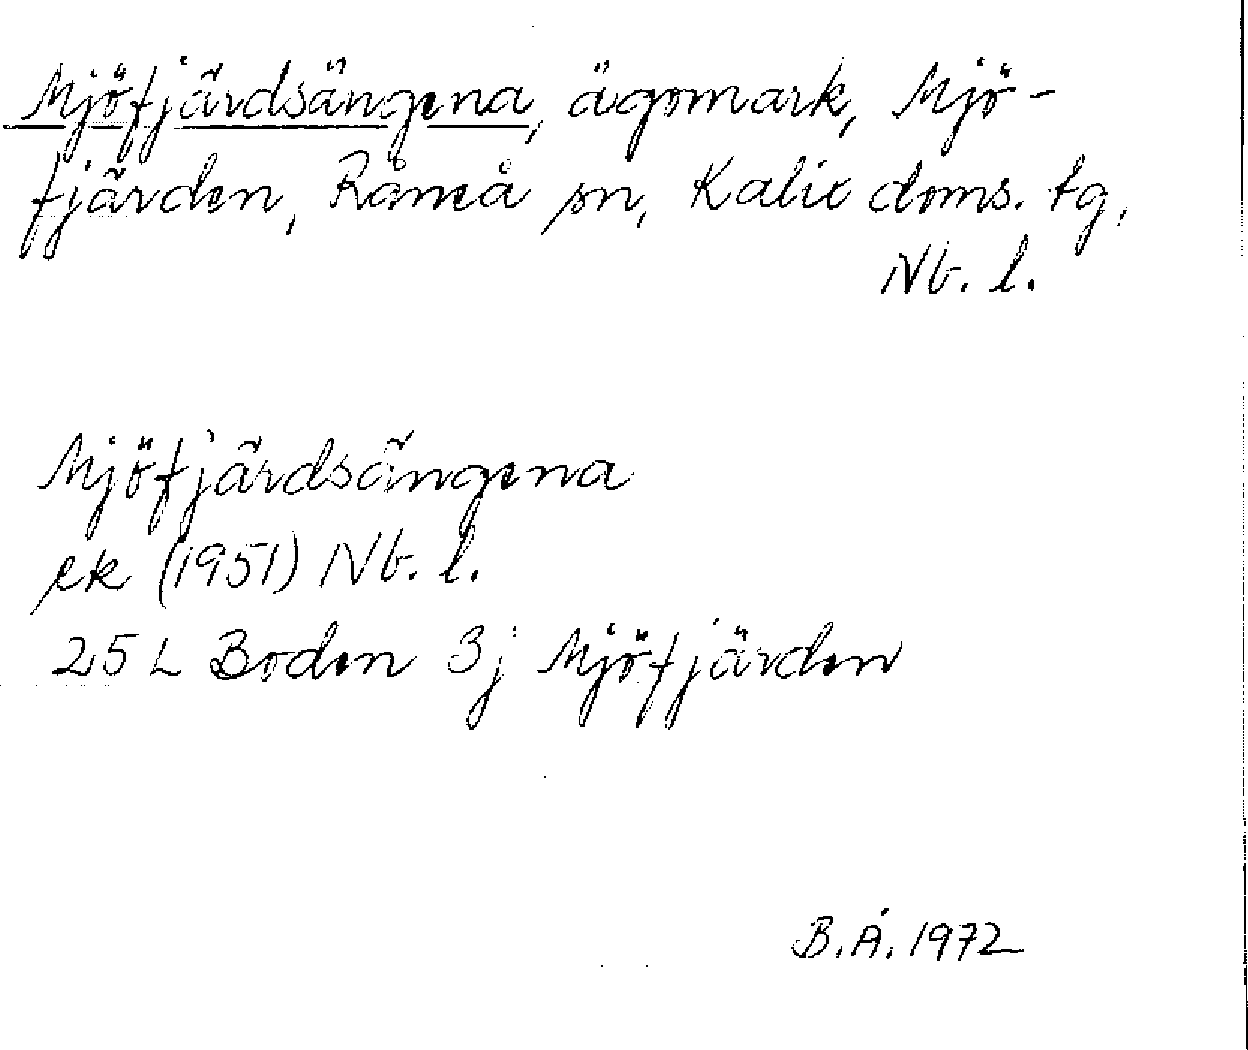 Mjöfjärdsängena, ägomark, Mjö-
fjärden, Råneå sn, Kalix doms. tg,
Nb. l.
Mjöfjärdsängena
ek (1951) Nb. l.
25 L Boden 3j Mjöfjärden
B.Å. 1972